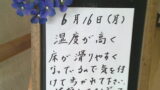 6月16日(月)
湿度が高く
床が滑りやすく
なっているので気を付
けてあがれて下さい。